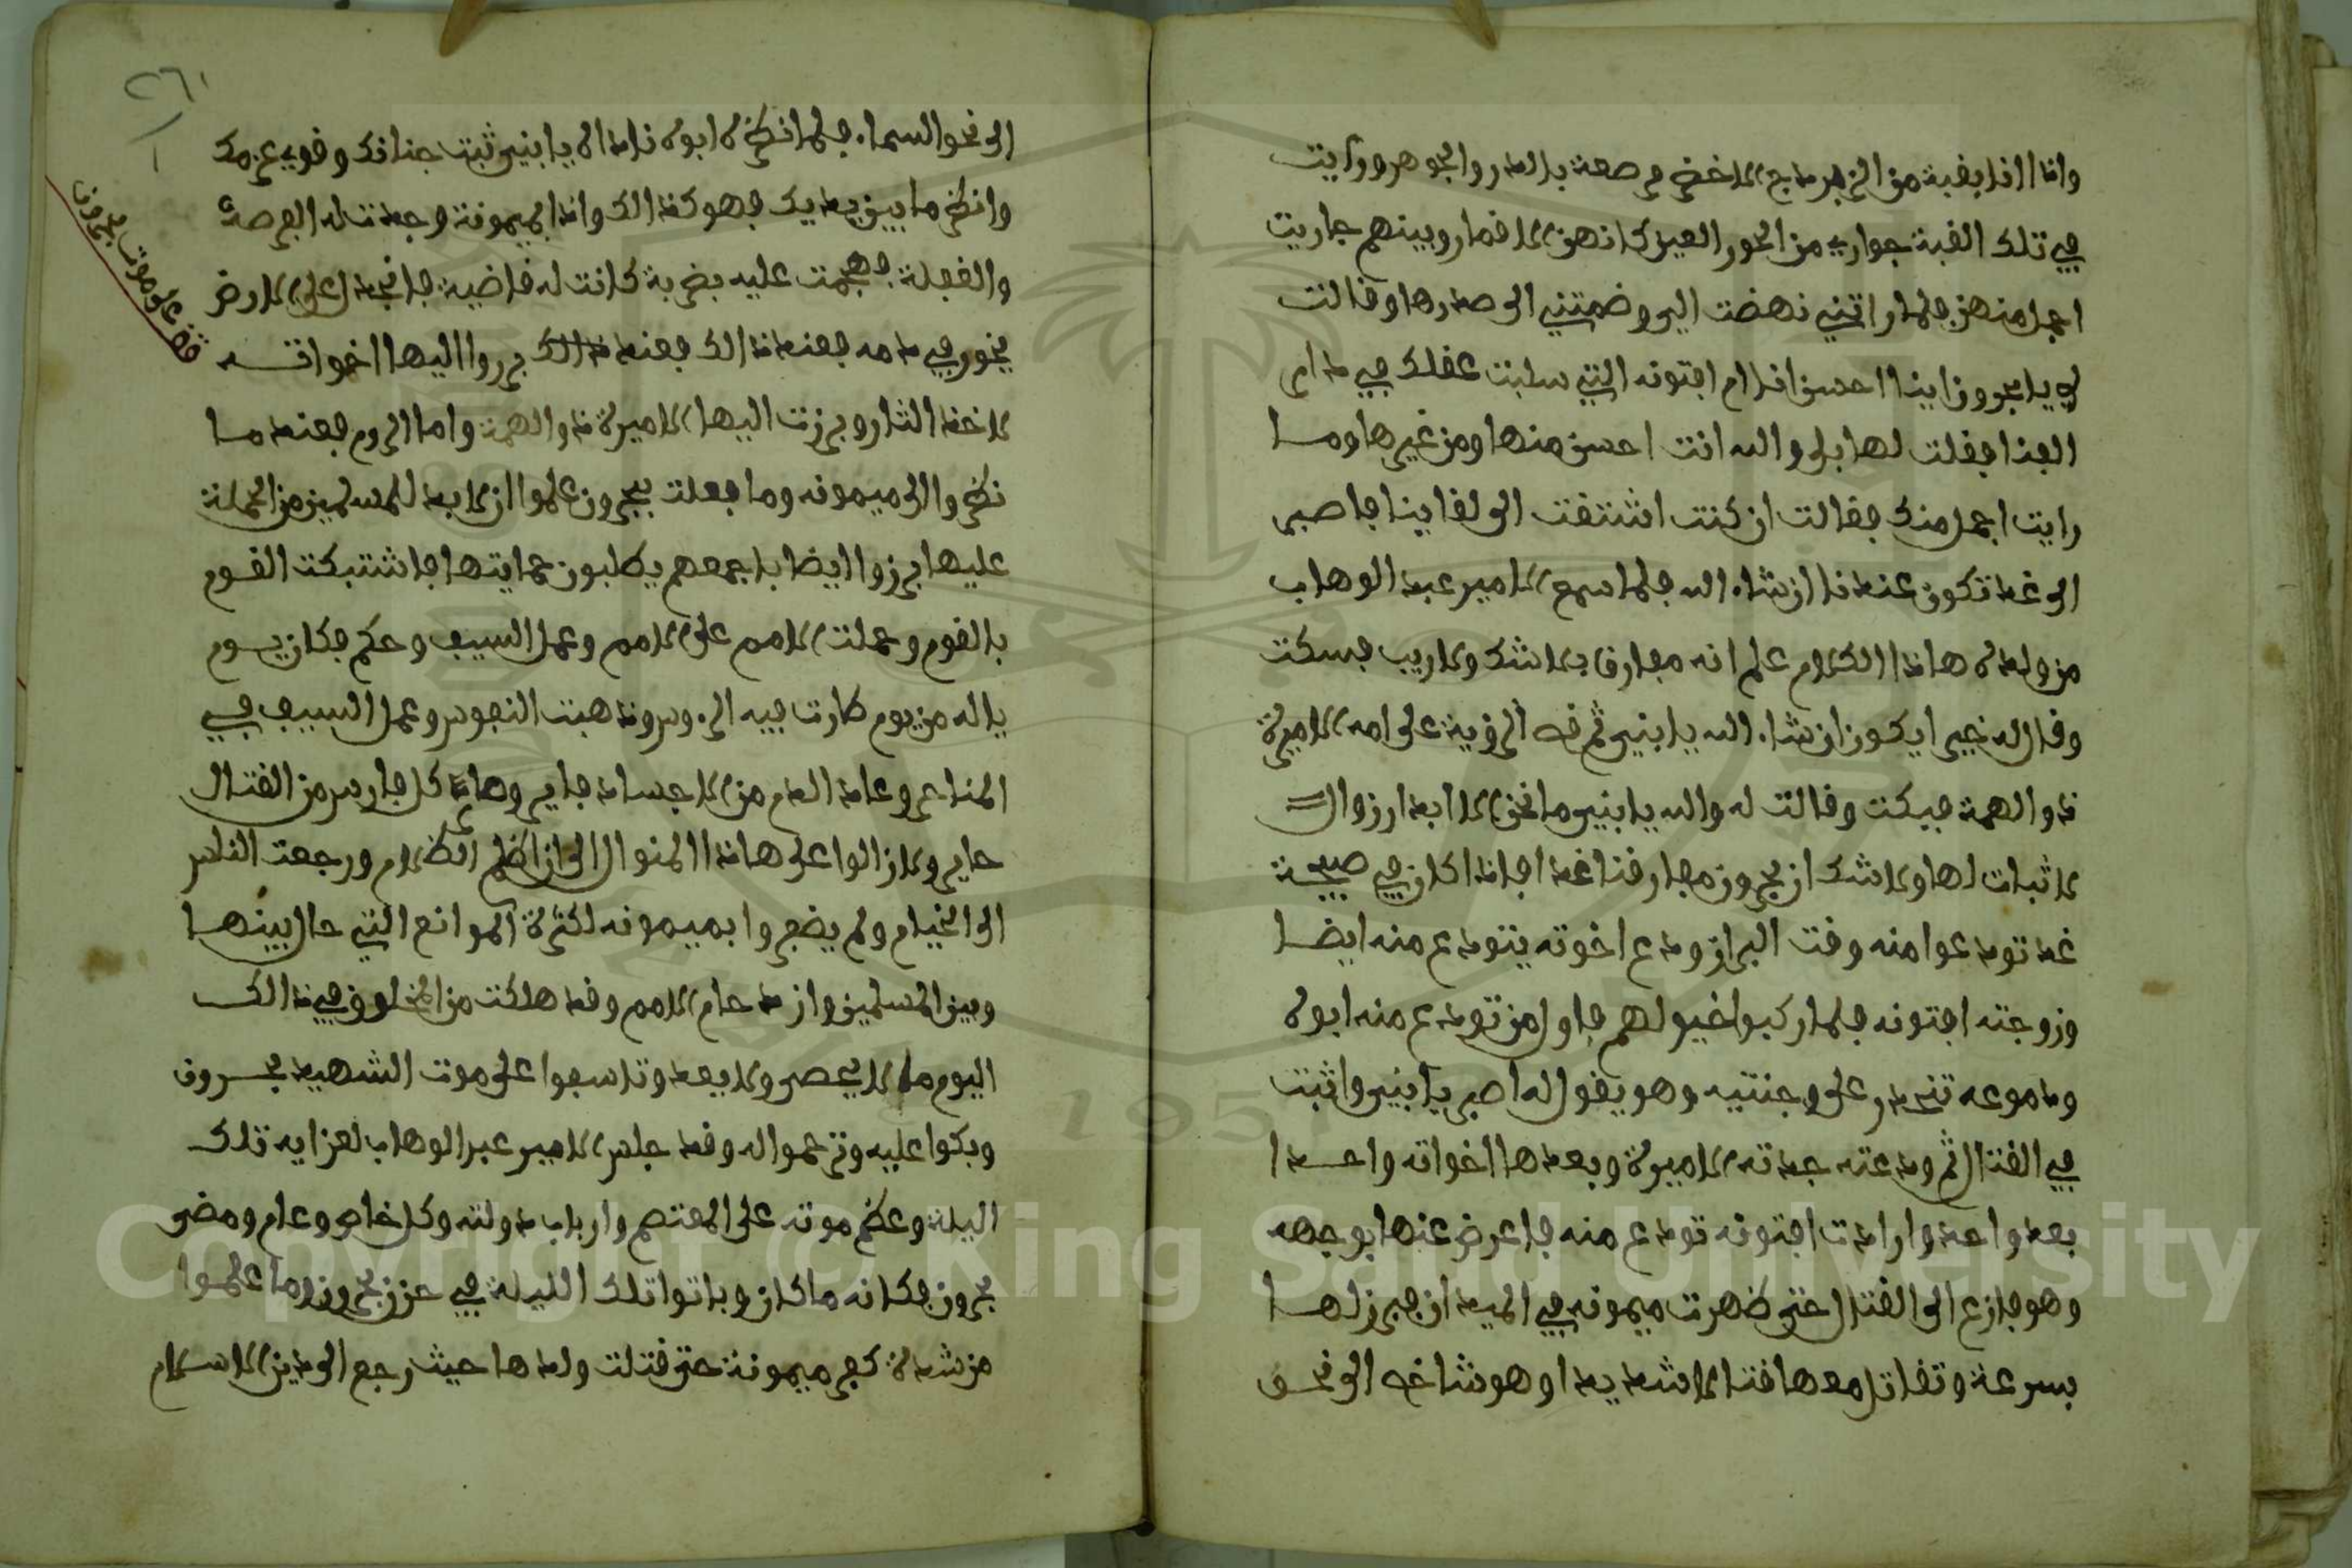 واذا انا بقبة من الزبرجد الاخضر مرصعة بالدر والجوهر ورايت
في تلك القبة جواري من الحور العين كانهن الاقمار وبينهم جاريت
اجمل منهن فلما راتني نهضت الي وضمتني الى صدرها وقالت
لي يا بحرون اينا احسن انا ام افتونه التي سلبت عقلك في دار
الفنا فقلت لها بلى والله انت احسن منها ومن غيرها وما
رايت اجمل منك فقالت ان كنت اشتقت الى لقاينا فاصبر
الى غد تكون عندنا ان شاء الله فلما سمع الامير عبد الوهاب
من ولده هاذا الكلام علم انه مفارق بلا شك ولا ريب فسكت
وقال له خير ايكون ان شاء الله يا بني ثم قص الرؤية على امه الاميرة
ذو الهمة فبكت وقالت له والله يا بني ما نحن الا ابدا زوال
لا ثبات لها ولا شك ان بحرون مفارقنا غدا فاذا كان في صبيحة
غد تودعوا منه وقت البراز ودع اخوته يتودع منه ايضا
وزوجته افتونه فلما ركبوا خيولهم فاول من تودع منه ابوه
ودموعه تنحدر على وجنتيه وهو يقول له اصبر يا بني واثبت
في القتال ثم ودعته جدته الاميرة وبعدها اخواته واحدا
بعد واحد وارادت افتونه تودع منه فاعرض عنها بوجهه
وهو فازع الى القتال حتى ظهرت ميمونه في الميدان فبرز لها
بسرعة وتقاتل معها قتالا شديدا وهو شاخص الى نحو
٢٦١
الى نحو السماء فلما نظره ابوه ناداه يا بني ثبت جنانك وقوي عزمك
وانظر ما بين يديك فهو كذالك واذا بميمونة وجدت له الفرصة
والغفلة فهجمت عليه بضربة كانت له قاضية فانجدل على الارض
يخور في دمه فعند ذالك فعند ذالك برزوا اليها اخواته
لاخذ الثار وبرزت اليها الاميرة ذو الهمة واما الروم فعندما
نظروا الى ميمونه وما فعلت ببحرون علموا ان لا بد للمسلمين من الحملة
عليها برزوا ايضا باجمعهم يطلبون حمايتها فاشتبكت القوم
بالقوم وحملت الامم على الامم وعمل السيف وحكم فكان يوم
ياله من يوم طارت فيه الروس وذهبت النفوس وعمل السيف في
المناحر وعاد الدم من الاجساد فاير وهاد كل فارس من القتال
حاير ولا زالوا على هاذا المنوال الى ان اظلم الظلام ورجعت الناس
الى الخيام ولم يضجروا بميمونه لكثرة الموانع التي حال بينها
وبين المسلمين وازدحام الامم وقد هلكت من الخلوق في ذالك
اليوم ما لا يحصى ولا يعد وتاسفوا على موت الشهيد بحرون
وبكوا عليه وترحموا له وقد جلس الامير عبد الوهاب لعزايه تلك
اليلة وعظم موته على المعتصم وارباب دولته وكل خاص وعام ومضى
بحرون فكانه ما كان وباتوا تلك الليلة في حزن بحرون وما علموا
من شدة كفر ميمونة حتى قتلت ولدها حيث رجع الى دين الاسلام
قف على موت بحرون
Copyright © King Saud University
1957